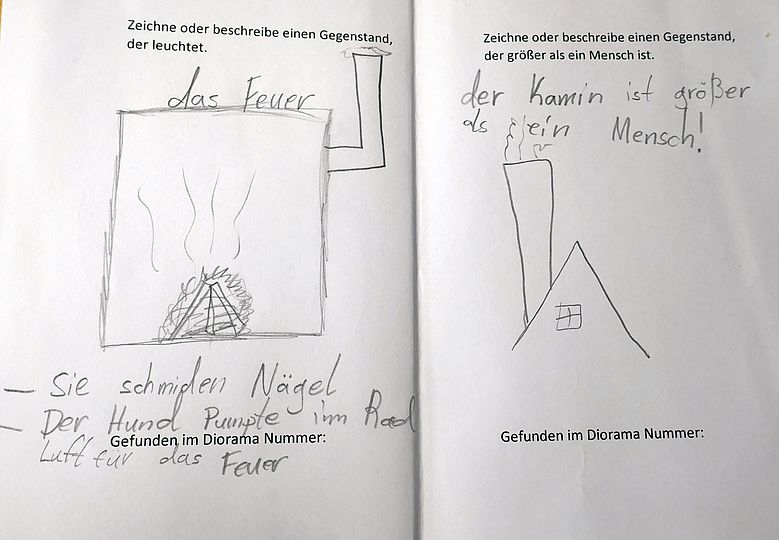 Zeichne oder beschreibe einen Gegenstand,
der leuchtet.
das Feuer
– Sie schmiden Nägel
– Der Hund Pumpte imm Rad
Gefunden im Diorama Nummer:
Luft für das Feuer
Zeichne oder beschreibe einen Gegenstand,
der größer als ein Mensch ist.
der Kamin ist größer
als ein Mensch!
Gefunden im Diorama Nummer: